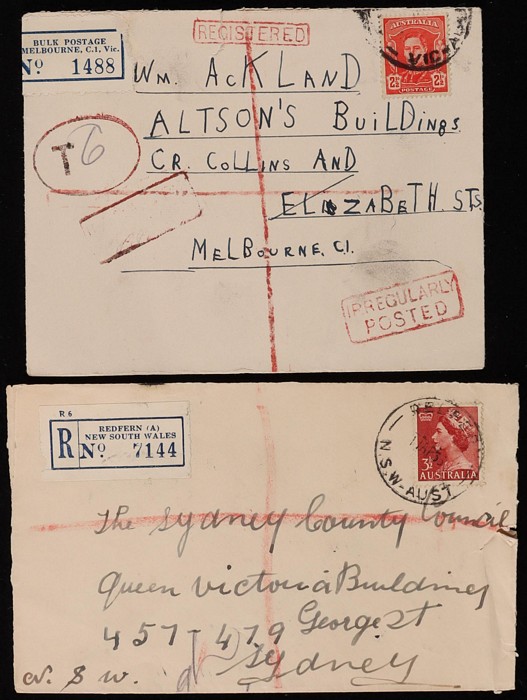 BULK POSTAGE
MELBOURNE, C.1, Vic.
No 1488
REGISTERED
AUSTRALIA
2½D 2½D
POSTAGE
VIC
T 6
WM. ACKLAND
ALTSON'S BUILDINGS
CR. COLLINS AND
ELIZABETH STS.
MELBOURNE. C1.
IRREGULARLY
POSTED
R6
R
REDFERN (A)
NEW SOUTH WALES
No 7144
3½D
AUSTRALIA
N.S.W-AUST
The Sydney County Council
Queen Victoria Buildings
457-479 George st
Sydney
N. S. W.